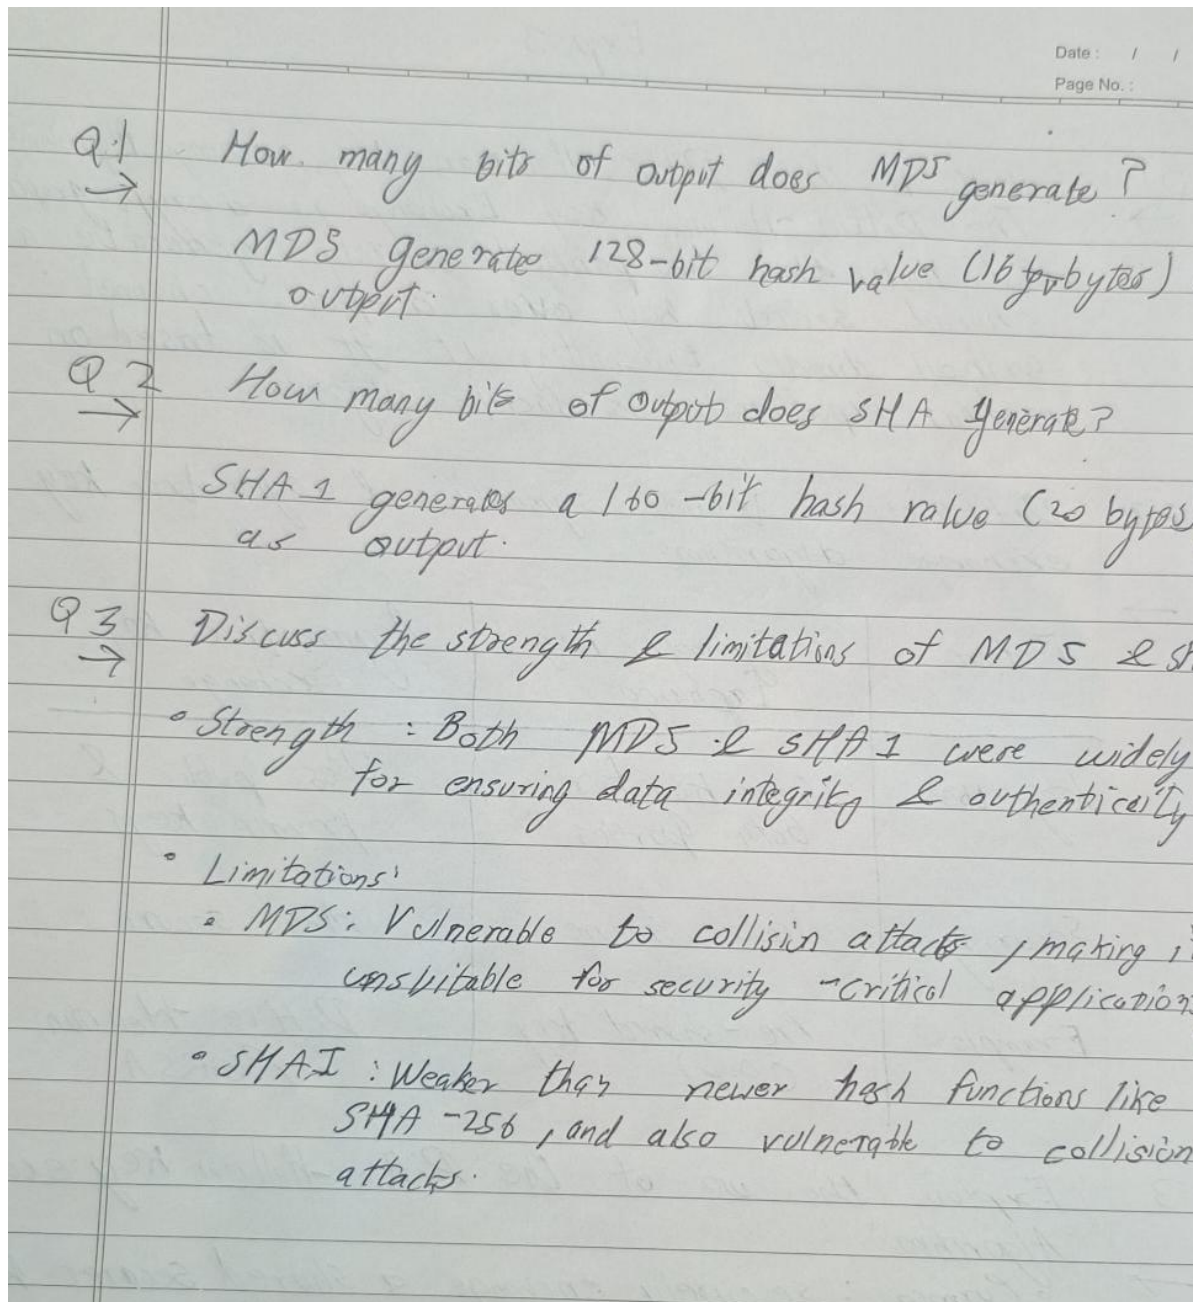 Date : / /
Page No. :
Q.1 How many bits of output does MD5 generate ?
→
MD5 generates 128-bit hash value (16 bytes)
output.
Q 2 How many bits of output does SHA generate?
→
SHA 1 generates a 160-bit hash value (20 bytes
as output.
Q 3 Discuss the strength & limitations of MD5 & SH
→
• Strength : Both MD5 & SHA 1 were widely
for ensuring data integrity & authenticity
• Limitations:
• MD5 : Vulnerable to collisin attacks , making i
unsuitable for security -critical application
• SHAI : Weaker than newer hash functions like
SHA -256 , and also vulnerable to collision
attacks.